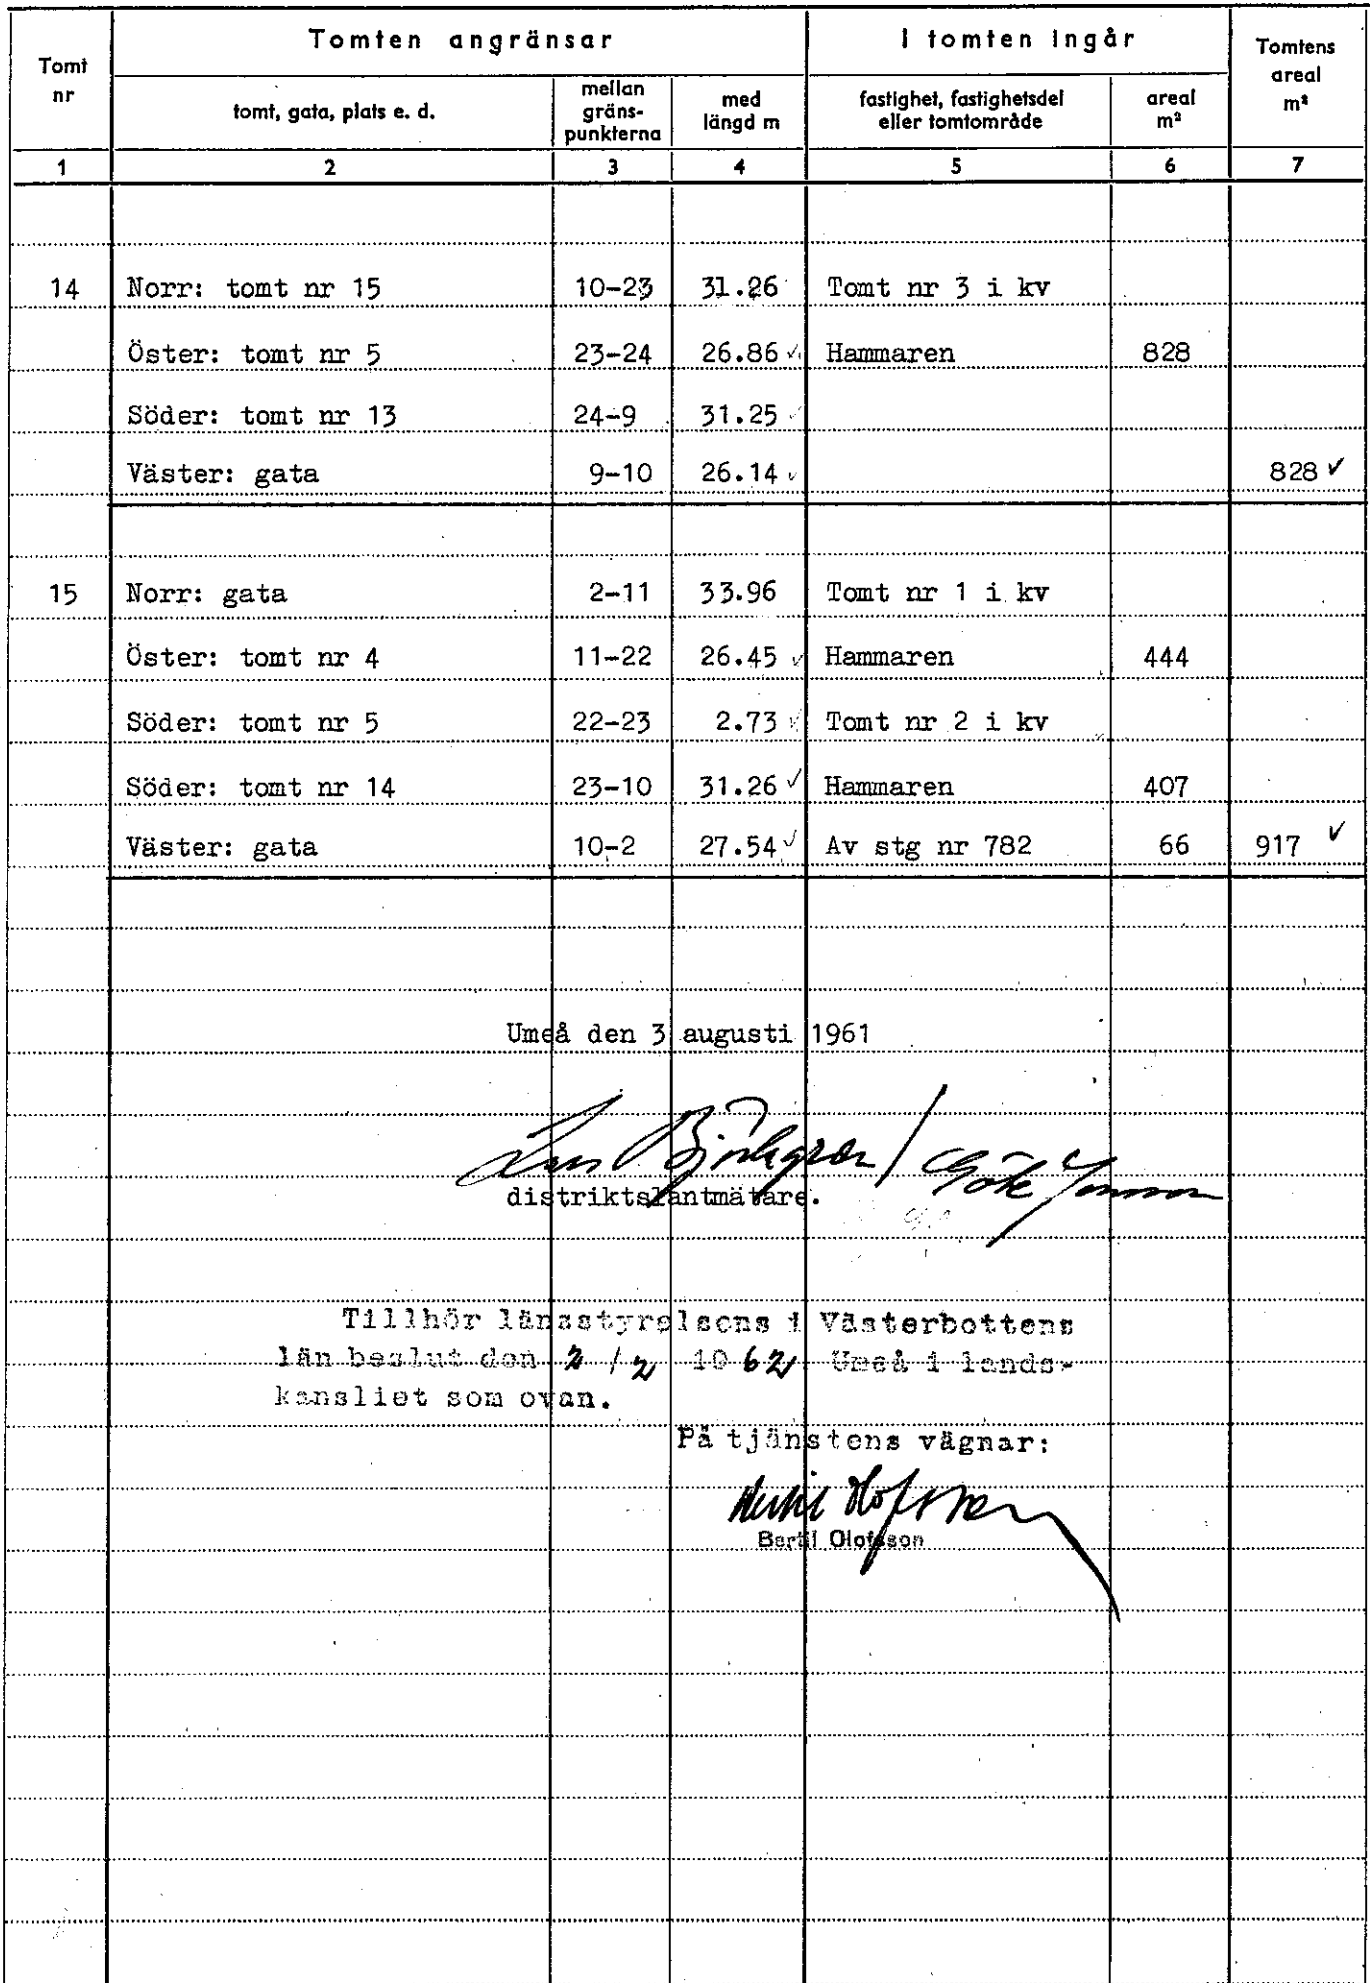 Tomt nr
Tomten angränsar
I tomten ingår
Tomtens areal m²
tomt, gata, plats e. d.
mellan gräns-punkterna
med längd m
fastighet, fastighetsdel eller tomtområde
areal m²
1 2 3 4 5 6 7
14 Norr: tomt nr 15 10-23 31.26 Tomt nr 3 i kv
Öster: tomt nr 5 23-24 26.86 ✓ Hammaren 828
Söder: tomt nr 13 24-9 31.25 ✓
Väster: gata 9-10 26.14 ✓ 828 ✓
15 Norr: gata 2-11 33.96 Tomt nr 1 i kv
Öster: tomt nr 4 11-22 26.45 ✓ Hammaren 444
Söder: tomt nr 5 22-23 2.73 ✓ Tomt nr 2 i kv
Söder: tomt nr 14 23-10 31.26 ✓ Hammaren 407
Väster: gata 10-2 27.54 ✓ Av stg nr 782 66 917 ✓
Umeå den 3 augusti 1961
Björkgren / Göte
distriktslantmätare.
Tillhör länsstyrelsens i Västerbottens
län beslut den 2/2 1962 Umeå i lands-
kansliet som ovan.
På tjänstens vägnar:
Bertil Olofsson
Bertil Olofsson